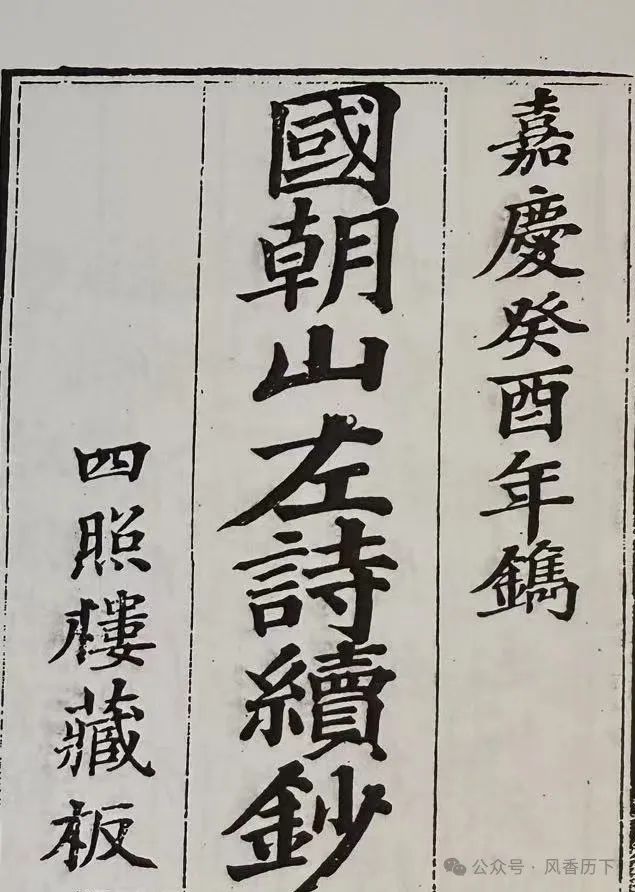 嘉慶癸酉年鐫
國朝山左詩續鈔
四照樓藏板
公众号·风香历下